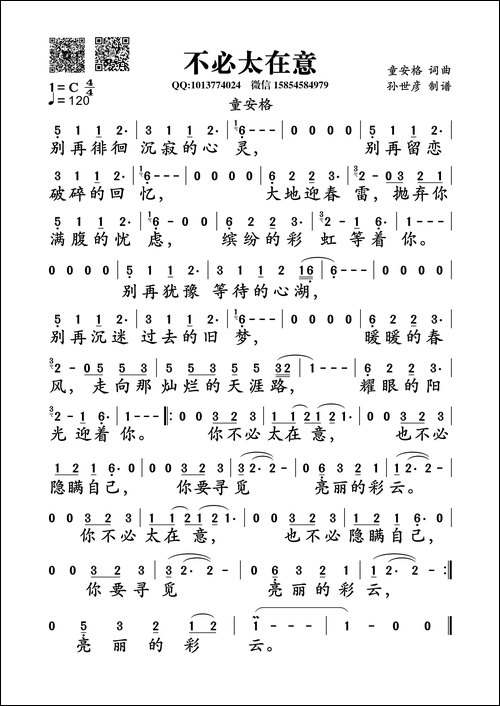 不必太在意
QQ:1013774024 微信 15854584979
童安格 词曲
孙世彦 制谱
1=C 4/4
♩=120
童安格
5 1 1 2· | 3 1 1 2· | 6 - - - | 0 0 0 0 | 5 1 1 2· |
别再徘徊 沉寂的心 灵， 别再留恋
3 1 1 2· | 6 - - - | 0 0 0 0 | 6 2 2 3· | 2 - 0 3 2 1 |
破碎的回 忆， 大地迎春 雷，抛弃你
5 1 1 2· | 6 - 0 0 | 6 2 2 3· | 2 - 1 6· | 1 - - - |
满腹的忧 虑， 缤纷的彩 虹 等着 你。
0 0 0 0 | 5 1 1 2· | 3 1 1 2 1 6 | 6 - - - | 0 0 0 0 |
别再犹豫 等待的心湖，
5 1 1 2· | 3 1 1 2· | 6 - - - | 0 0 0 0 | 6 2 2 3· |
别再沉迷 过去的旧 梦， 暖暖的春
2 - 0 5 5 3 | 5 5 5 5 3 2 | 1 - - - | 6 2 2 3· |
风，走向那 灿烂的天涯路， 耀眼的阳
2 - 1 6· | 1 - - - |: 0 0 3 2 3 | 1 1 2 1 2 1· | 0 0 3 2 3 |
光迎着 你。 你不必 太在 意， 也不必
1 2 1 6· | 0 0 3 2 3 | 3 2· 2 - | 0 6 3 2 1 | 3 2· 2 - |
隐瞒自己， 你要寻 觅 亮丽的 彩云。
0 0 3 2 3 | 1 1 2 1 2 1· | 0 0 3 2 3 | 1 2 1 6· |
你不必 太在 意， 也不必 隐瞒自己，
0 0 3 2 3 | 3 2· 2 - | 0 6 3 2 1 | 3 2· 2 - :|
你要寻 觅 亮丽的 彩云，
0 5 3 2 | 3 2 2 - | 1 - - - | 1 - 0 0 ‖
亮 丽 的 彩 云。